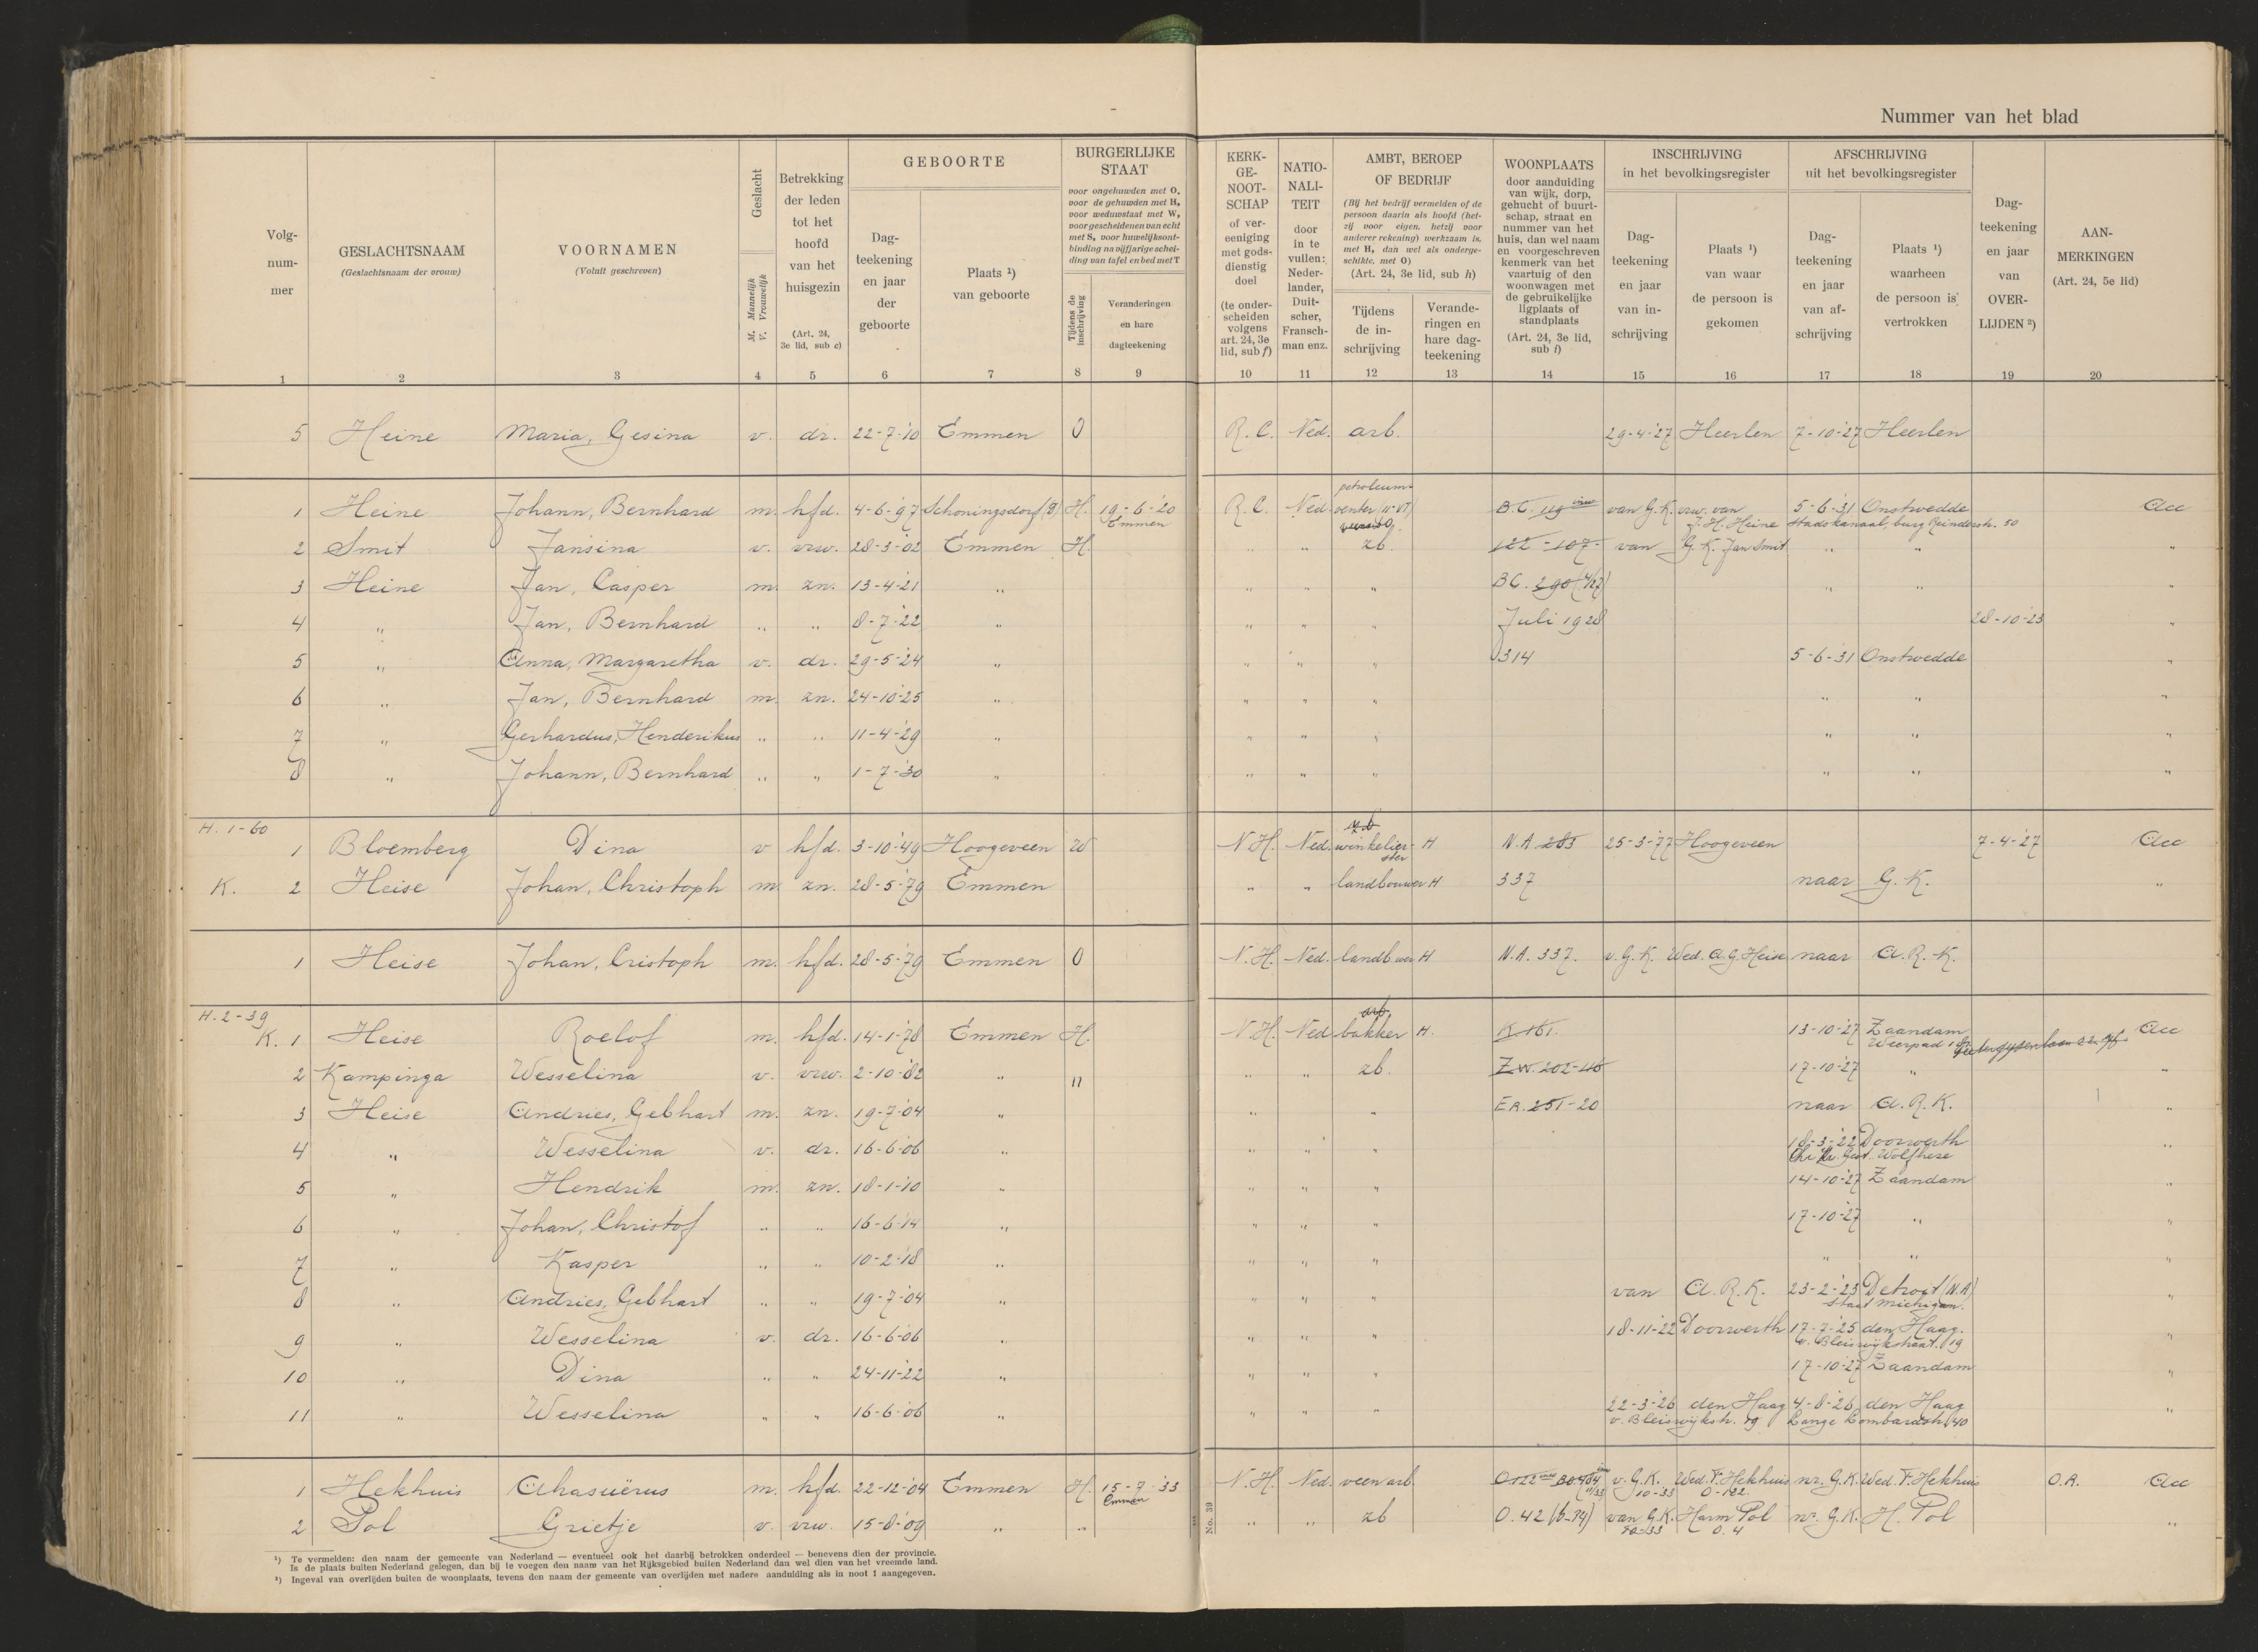 Nummer van het blad
Volg-
num-
mer
GESLACHTSNAAM
(Geslachtsnaam der vrouw)
VOORNAMEN
(Voluit geschreven)
Geslacht
M. Mannelijk
V. Vrouwelijk
Betrekking
der leden
tot het
hoofd
van het
huisgezin
(Art. 24,
3e lid, sub c)
GEBOORTE
Dag-
teekening
en jaar
der
geboorte
Plaats ¹)
van geboorte
BURGERLIJKE
STAAT
voor ongehuwden met O,
voor de gehuwden met H,
voor weduwstaat met W,
voor gescheidenen van echt
met S, voor huwelijksont-
binding na vijfjarige schei-
ding van tafel en bed met T
Tijdens de
inschrijving
Veranderingen
en hare
dagteekening
KERK-
GE-
NOOT-
SCHAP
of ver-
eeniging
met gods-
dienstig
doel
(te onder-
scheiden
volgens
art. 24, 3e
lid, sub f)
NATIO-
NALI-
TEIT
door
in te
vullen:
Neder-
lander,
Duit-
scher,
Fransch-
man enz.
AMBT, BEROEP
OF BEDRIJF
(Bij het bedrijf vermelden of de
persoon daarin als hoofd (het-
zij voor eigen, hetzij voor
anderer rekening) werkzaam is,
met H, dan wel als onderge-
schikte, met O)
(Art. 24, 3e lid, sub h)
Tijdens
de in-
schrijving
Verande-
ringen en
hare dag-
teekening
WOONPLAATS
door aanduiding
van wijk, dorp,
gehucht of buurt-
schap, straat en
nummer van het
huis, dan wel naam
en voorgeschreven
kenmerk van het
vaartuig of den
woonwagen met
de gebruikelijke
ligplaats of
standplaats
(Art. 24, 3e lid,
sub i)
INSCHRIJVING
in het bevolkingsregister
Dag-
teekening
en jaar
van in-
schrijving
Plaats ¹)
van waar
de persoon is
gekomen
AFSCHRIJVING
uit het bevolkingsregister
Dag-
teekening
en jaar
van af-
schrijving
Plaats ¹)
waarheen
de persoon is
vertrokken
Dag-
teekening
en jaar
van
OVER-
LIJDEN ²)
AAN-
MERKINGEN
(Art. 24, 5e lid)
1 2 3 4 5 6 7 8 9 10 11 12 13 14 15 16 17 18 19 20
5 Heine Maria, Gesina v. dr. 22-7-'10 Emmen O R.C. Ned. arb. 29-4-'27 Heerlen 7-10-'27 Heerlen
petroleum-
1 Heine Johann, Bernhard m. hfd. 4-6-'97 Schoningsdorf H. 19-6-'20 R.C. Ned. venter B.C. 119 van G.K. vrw. van 5-6-'31 Onstwedde
Emmen J.H. Heine Stadskanaal, burg Reinderstr. 50
2 Smit Jansina v. vrw. 28-3-'02 Emmen H. " " zb. 122-107 van G.K. Jan Smit " " "
3 Heine Jan, Casper m. zn. 13-4-'21 " " " " B.C. 290 (4/27) " " "
4 " Jan, Bernhard " " 8-7-'22 " " " " Juli 1928 28-10-'23 "
5 " Anna, Margaretha v. dr. 29-5-'24 " " " " 314 5-6-'31 Onstwedde "
6 " Jan, Bernhard m. zn. 24-10-'25 " " " " " " "
7 " Gerhardus, Henderikus " " 11-4-'29 " " " " " " "
8 " Johann, Bernhard " " 1-7-'30 " " " " " " "
H. 1-60 z.b.
1 Bloemberg Dina v hfd. 3-10-'49 Hoogeveen W N.H. Ned. winkelier- H N.A 283 25-3-'77 Hoogeveen 7-4-'27
ster
K. 2 Heise Johan, Christoph m. zn. 28-5-'79 Emmen " " landbouwer H 337 naar G.K. "
1 Heise Johan, Cristoph m. hfd. 28-5-'79 Emmen O N.H. Ned. landb.uwer H N.A. 337. v.G.K. Wed. A.G. Heise naar A.R.-K.
H. 2-39 arb.
K. 1 Heise Roelof m. hfd. 14-1-'78 Emmen H. N.H. Ned bakker H. K 161. 13-10-'27 Zaandam
Weerpad
2 Kampinga Wesselina v. vrw. 2-10-'82 " " " " zb. Z.W. 202-46 17-10-'27 " "
3 Heise Andries, Gebhart m. zn. 19-7-'04 " " " E.A. 251-20 naar A.R.K. "
4 " Wesselina v. dr. 16-6-'06 " " " 18-3-'22 Doorwerth "
Wolfheze
5 " Hendrik m. zn. 18-1-'10 " " " " 14-10-'27 Zaandam "
6 " Johan, Christof " " 16-6-'14 " " " " 17-10-'27 " "
7 " Kasper " " 10-2-'18 " " " " " " "
8 " Andries, Gebhart " " 19-7-'04 " " " " van A.R.K. 23-2-'23 Detroit (N.A) "
Staat Michigan.
9 " Wesselina v. dr. 16-6-'06 " " " " 18-11-'22 Doorwerth 17-7-'25 den Haag. "
v. Bleiswijkstraat. 19
10 " Dina " " 24-11-'22 " " " " 17-10-'27 Zaandam "
11 " Wesselina " " 16-6-'06 " " " " 22-3-'26 den Haag 4-8-'26 den Haag "
v. Bleiswijkstr. 19 Lange Lombardstr. 40
1 Hekhuis Ahasuërus m. hfd. 22-12-'04 Emmen H. 15-7-'33 N.H. Ned. veenarb. O.122 v.G.K. Wed. F. Hekhuis nr. G.K. Wed. F. Hekhuis O.A.
Emmen 10-33 O-122
2 Pol Grietje v. vrw. 15-8-'09 " " " " zb O.42 (6-34) van G.K. Harm Pol nr. G.K. H. Pol "
10-33 O.4
No. 39
¹) Te vermelden: den naam der gemeente van Nederland — eventueel ook het daarbij betrokken onderdeel — benevens dien der provincie.
Is de plaats buiten Nederland gelegen, dan bij te voegen den naam van het Rijksgebied buiten Nederland dan wel dien van het vreemde land.
²) Ingeval van overlijden buiten de woonplaats, tevens den naam der gemeente van overlijden met nadere aanduiding als in noot 1 aangegeven.